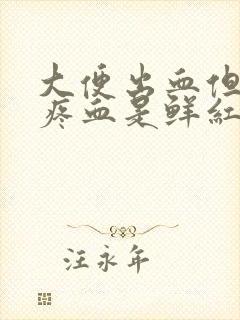 大便出血但
疼血是鲜红
汪永年